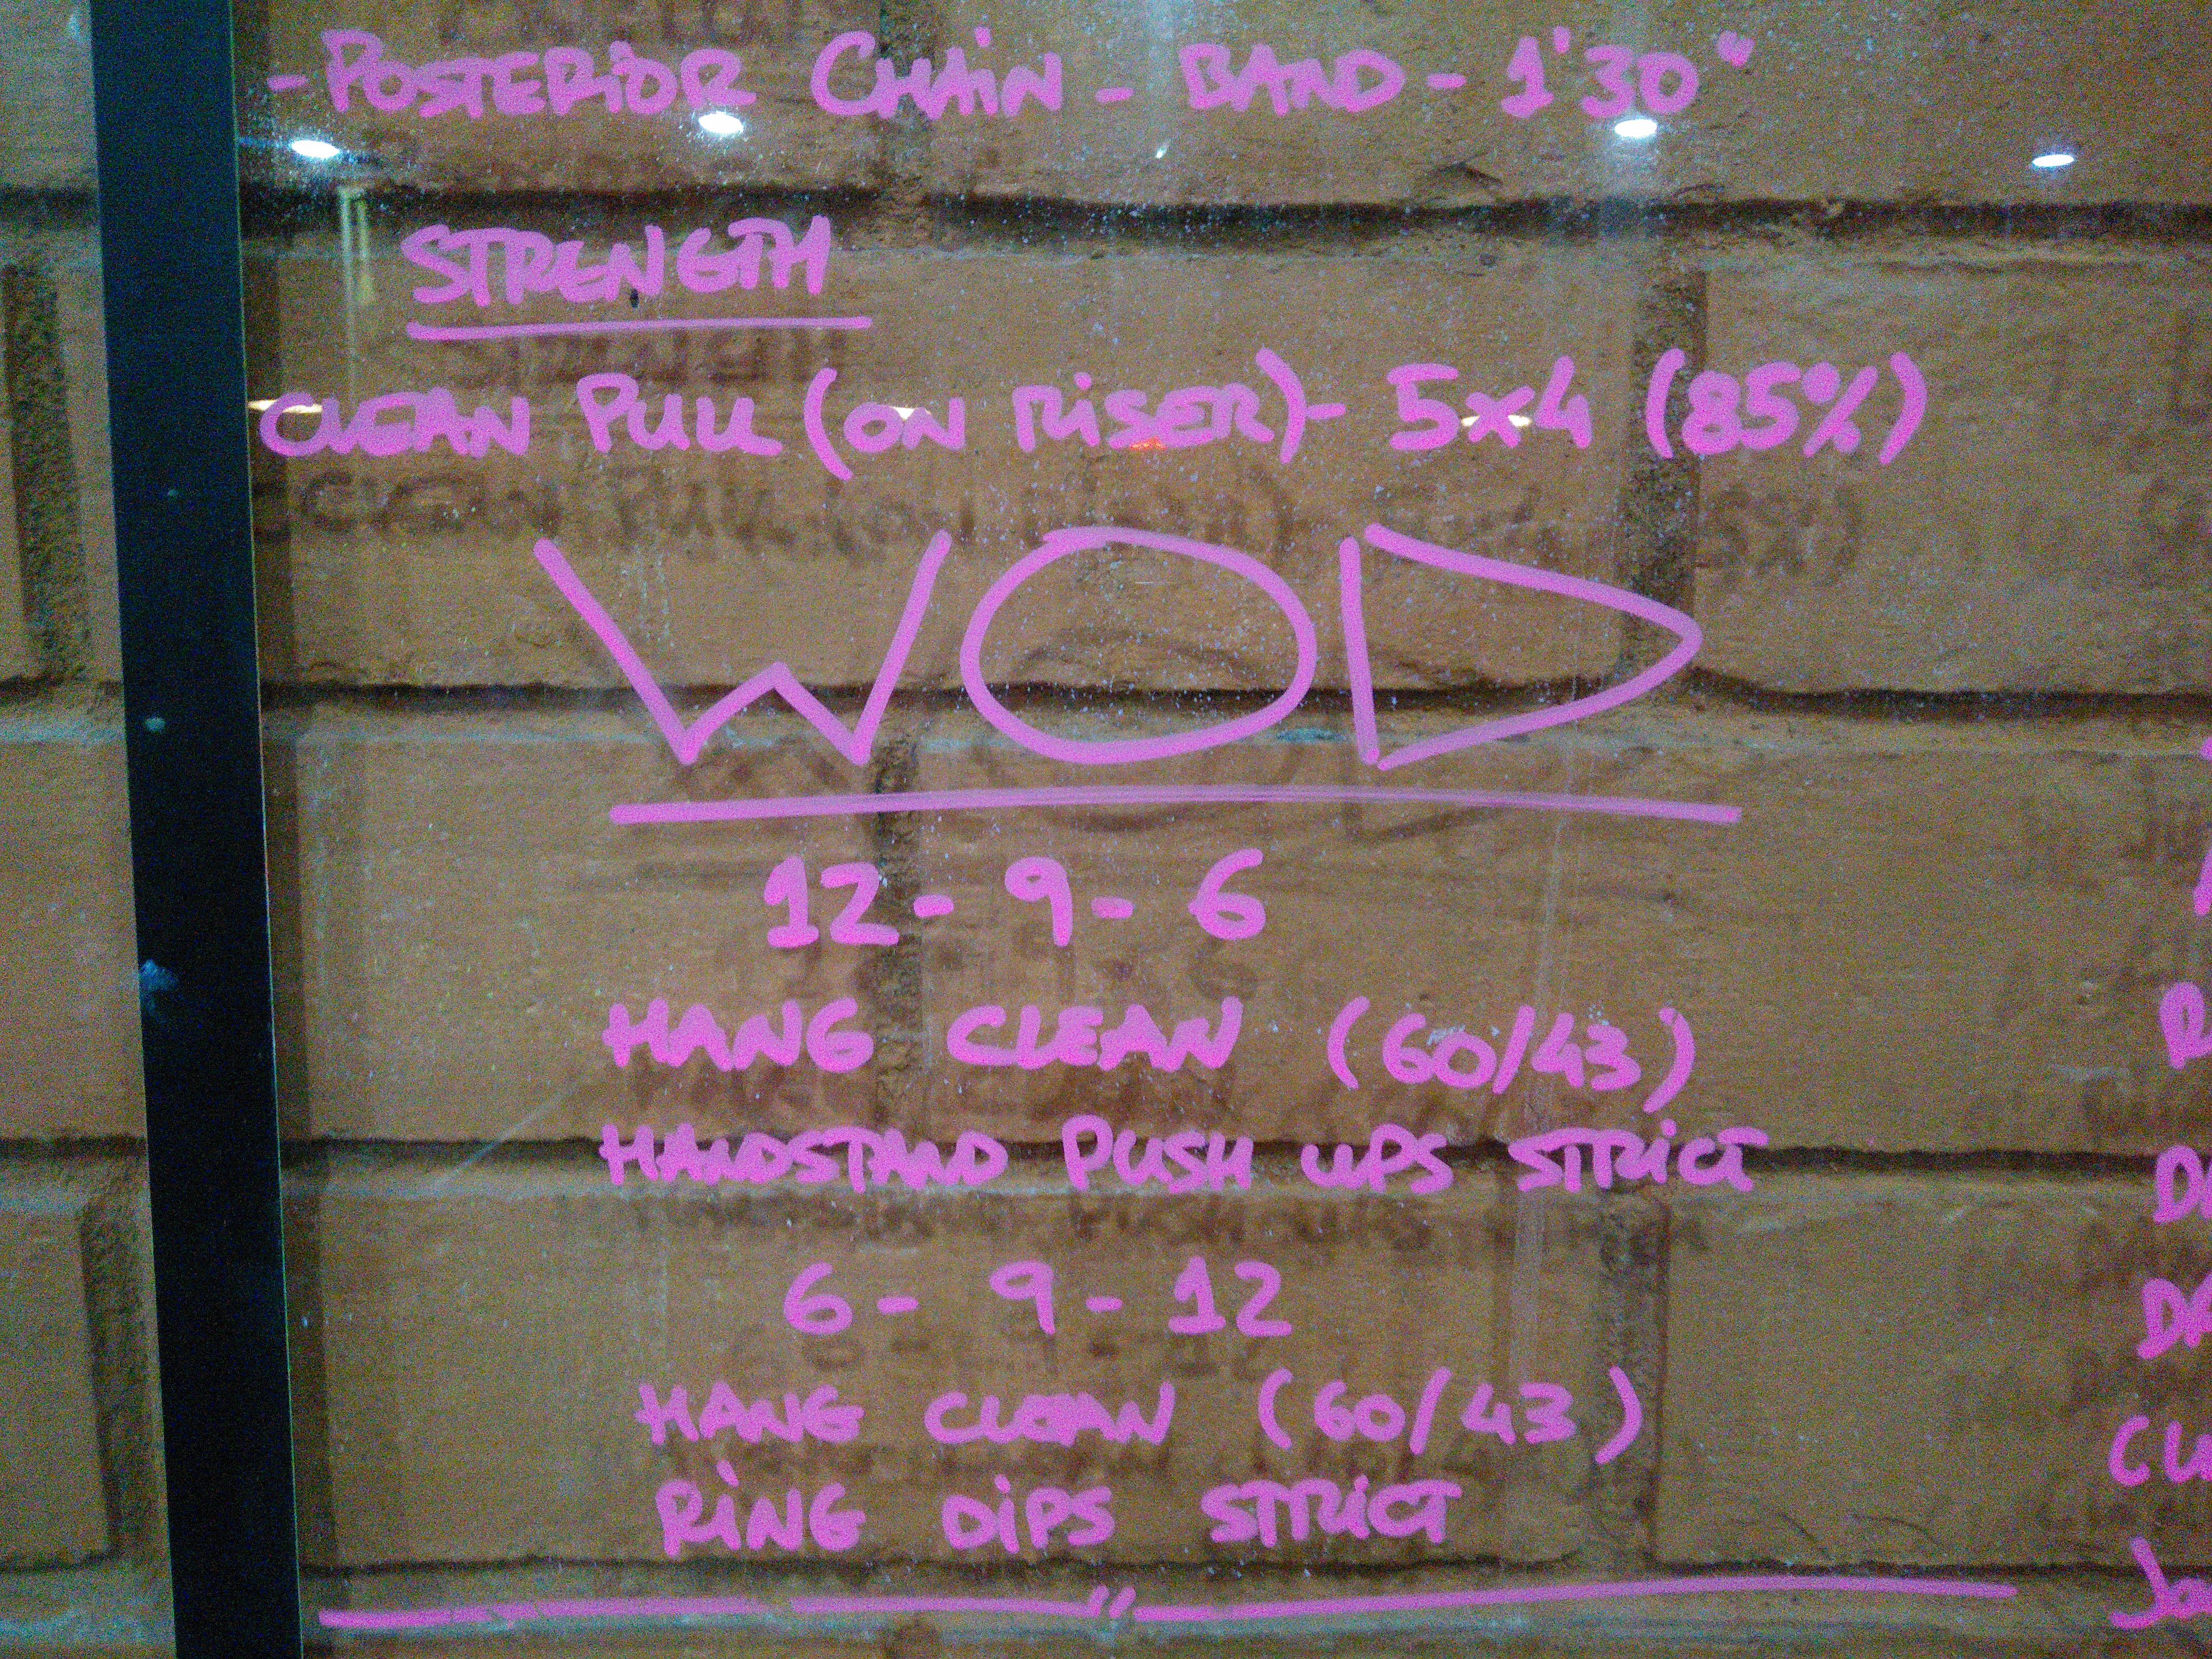 - POSTERIOR CHAIN - BAND - 1'30"
STRENGTH
CLEAN PULL (ON RISER) - 5x4 (85%)
WOD
12 - 9 - 6
HANG CLEAN (60/43)
HANDSTAND PUSH UPS STRICT
6 - 9 - 12
HANG CLEAN (60/43)
RING DIPS STRICT